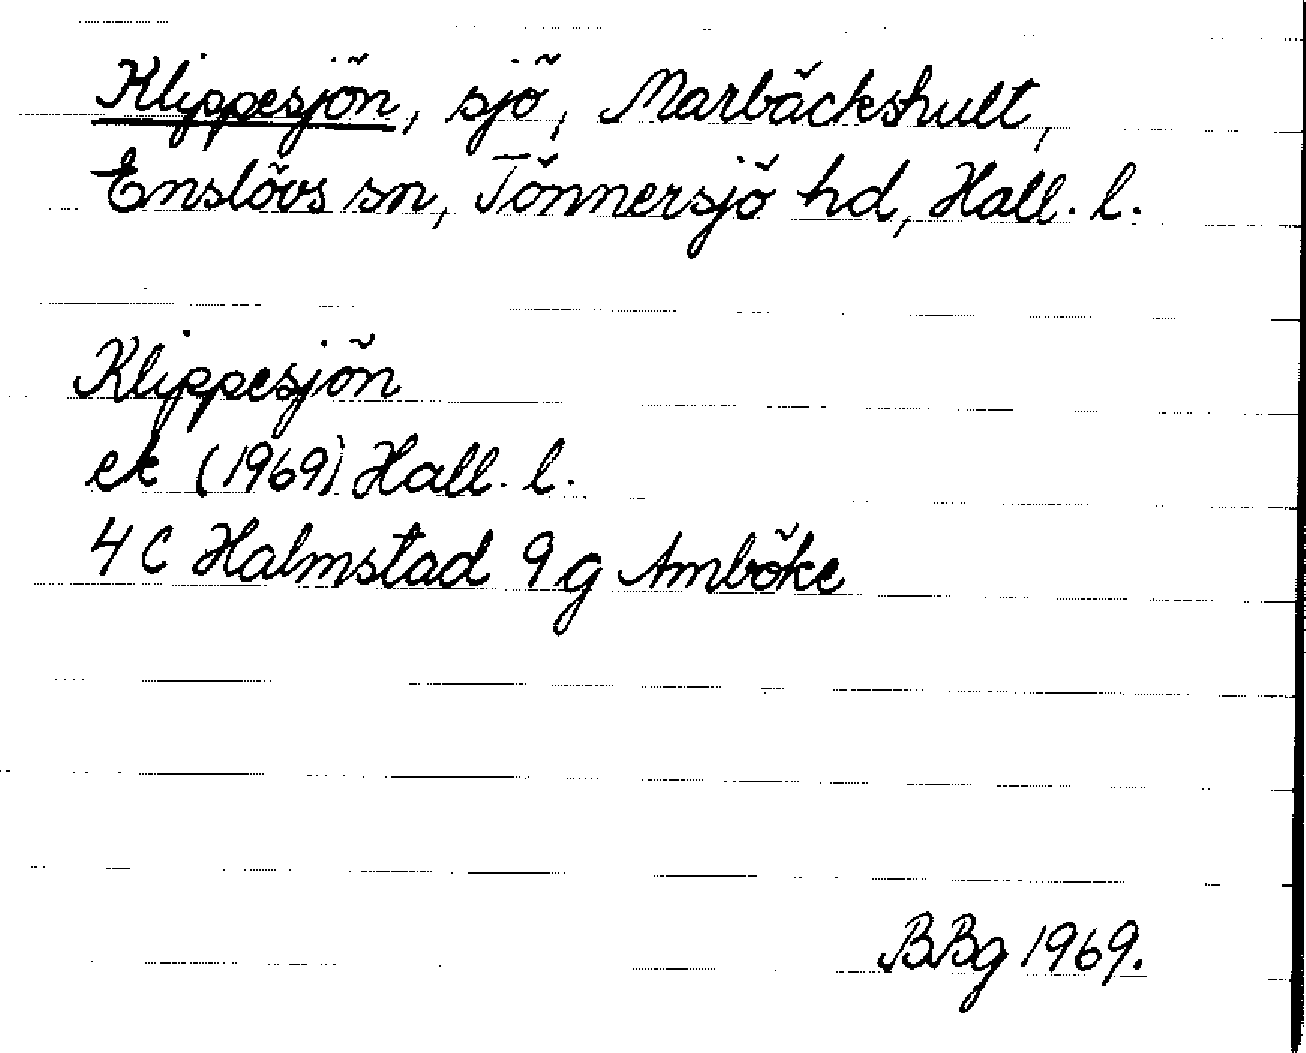 Klippesjön, sjö, Marbäckshult,
Enslövs sn, Tönnersjö hd, Hall. l.
Klippesjön
ek (1969) Hall. l.
4 C Halmstad 9 g Amböke
BBg 1969.